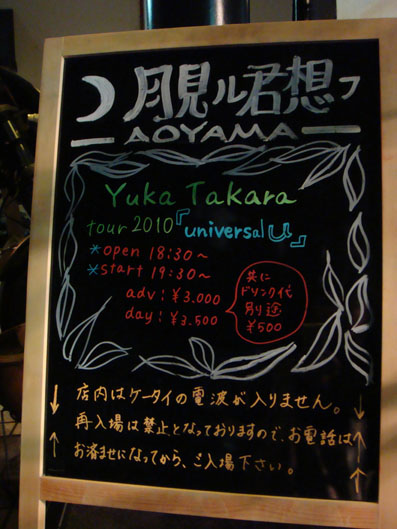 月見ル君想フ
AOYAMA
Yuka Takara
tour 2010『universal U』
*open 18:30~
*start 19:30~
adv: ¥3.000
day: ¥3.500
共に
ドリンク代
別途
¥500
店内はケータイの電波が入りません。
再入場は禁止となっておりますので、お電話は
お済ませになってから、ご入場下さい。